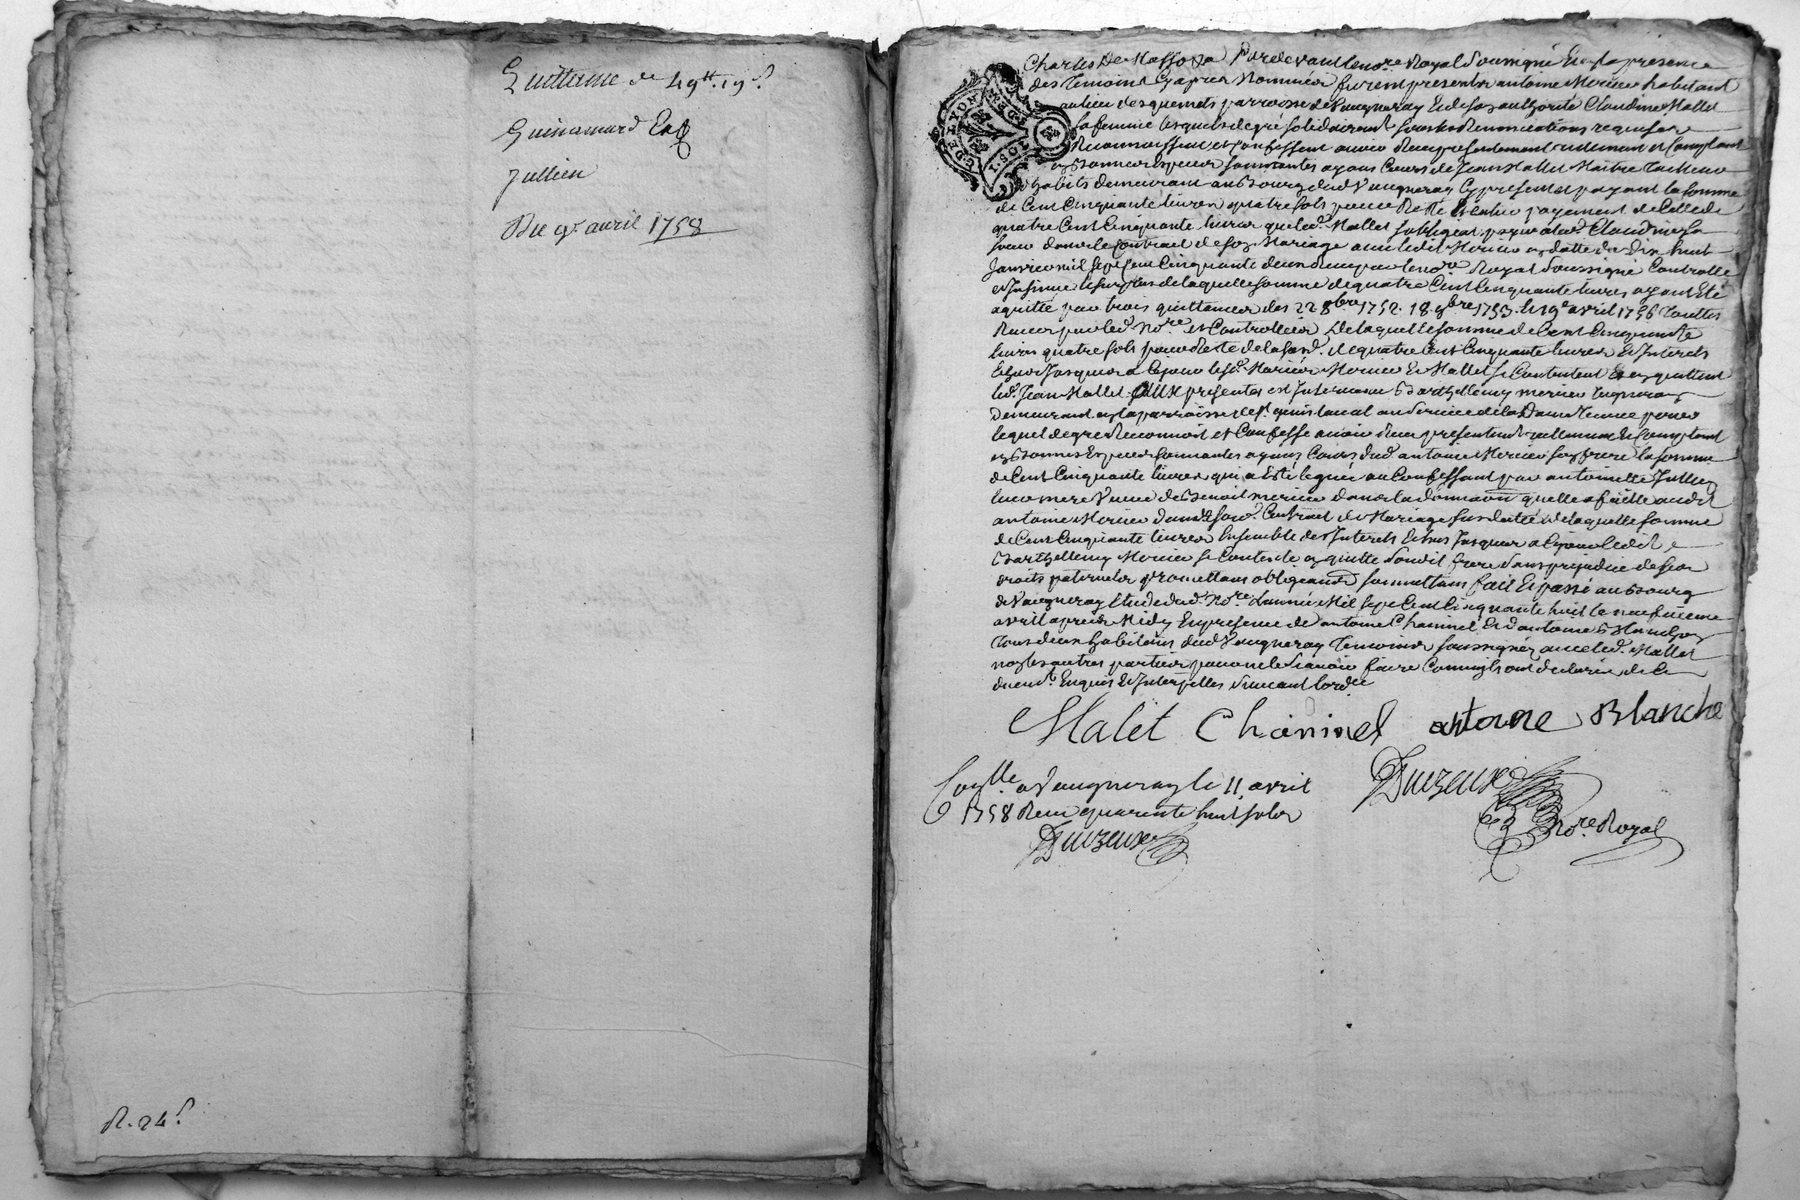 Quittance de 49tt. 19s.
Guinamard Et
Jullien
Du 9e. avril 1758
R. 24s.
Charles De Masso Pardevant le no.re Royal Soussigné En la presence
des Temoins Cyapres Nommés furent presents antoine Morier habitant
au lieu des parroisse de Vaugneray Et de son authorité Claudine Mallet
sa femme lesquels de gré solidairement sous les Renonciations requises
Reconnoissent et Confessent avoir Receu presentement reelement et Comptant
en Bonnes Especes sonnantes ayans Cours de Jean Mallet Maitre Tailleur
d'habits demeurant au Bourg dud. Vaugneray Cy present et payant la somme
de Cent Cinquante livres quatre sols pour Reste Et entier payement de Celle de
quatre Cent Cinquante livres que led. Mallet a lad. Claudine sa
soeur dans le Contract de son Mariage avec ledit Morier en datte du Dix huit
Janvier mil sept Cent Cinquante deux Receu par le no.re Royal Soussigné Controllé
et Insinué le surplus de laquelle somme de quatre Cent Cinquante livres ayant Eté
aquitté par trois quittances des 22 8bre 1752. 18. 9bre 1753. et 19e avril 1756 Touttes
Receues par led. No.re et Controllées De laquelle somme de Cent Cinquante
livres quatre sols pour Reste de lad. de quatre Cent Cinquante livres Et Interets
Echus Jusques a Ce jour les d. Mariés Morier Et Mallet se Contentent Et en quittent
led. Jean Mallet. AUX presentes est Intervenu Barthellemy Morier Vigneron
Demeurant en la parroisse de St. au service de la Dame
lequel de gré Reconnoit et Confesse avoir Receu presentement reellement Et Comptant
en Bonnes Especes sonnantes ayans Cours dud. antoine Morier son frere la somme
de Cent Cinquante livres qui a Eté leguée au Confessant par antoinette Jullien
leur mere Veuve de Benoit Morier dans la donnation quelle a faitte audit
antoine Morier dans sond. Contract de Mariage susdatté de laquelle somme
de Cent Cinquante livres Ensemble des Interets Echus Jusques a Ce jour ledit
Barthellemy Morier se Contente en quitte sondit frere sans prejudice de ses
droits paternels promettans obligeans soumettans fait Et passé au Bourg
de Vaugneray Etude dud. No.re L'année Mil sept Cent Cinquante huit le neufvieme
avril apres Midy En presence de antoine Chaninel Et d'antoine Blanche
Tous deux habitans dud. Vaugneray Temoins soussignés avec led. Mallet
non les autres parties pour ne le sçavoir faire Comm'ils ont declaré de Ce
duement Enquis Et Interpellés suivant l'ord.ce
Malet Chaninel antoine Blanche
Con.lle a Vaugneray le 11 avril
1758 Receu quarante huit sols
No.re Royal